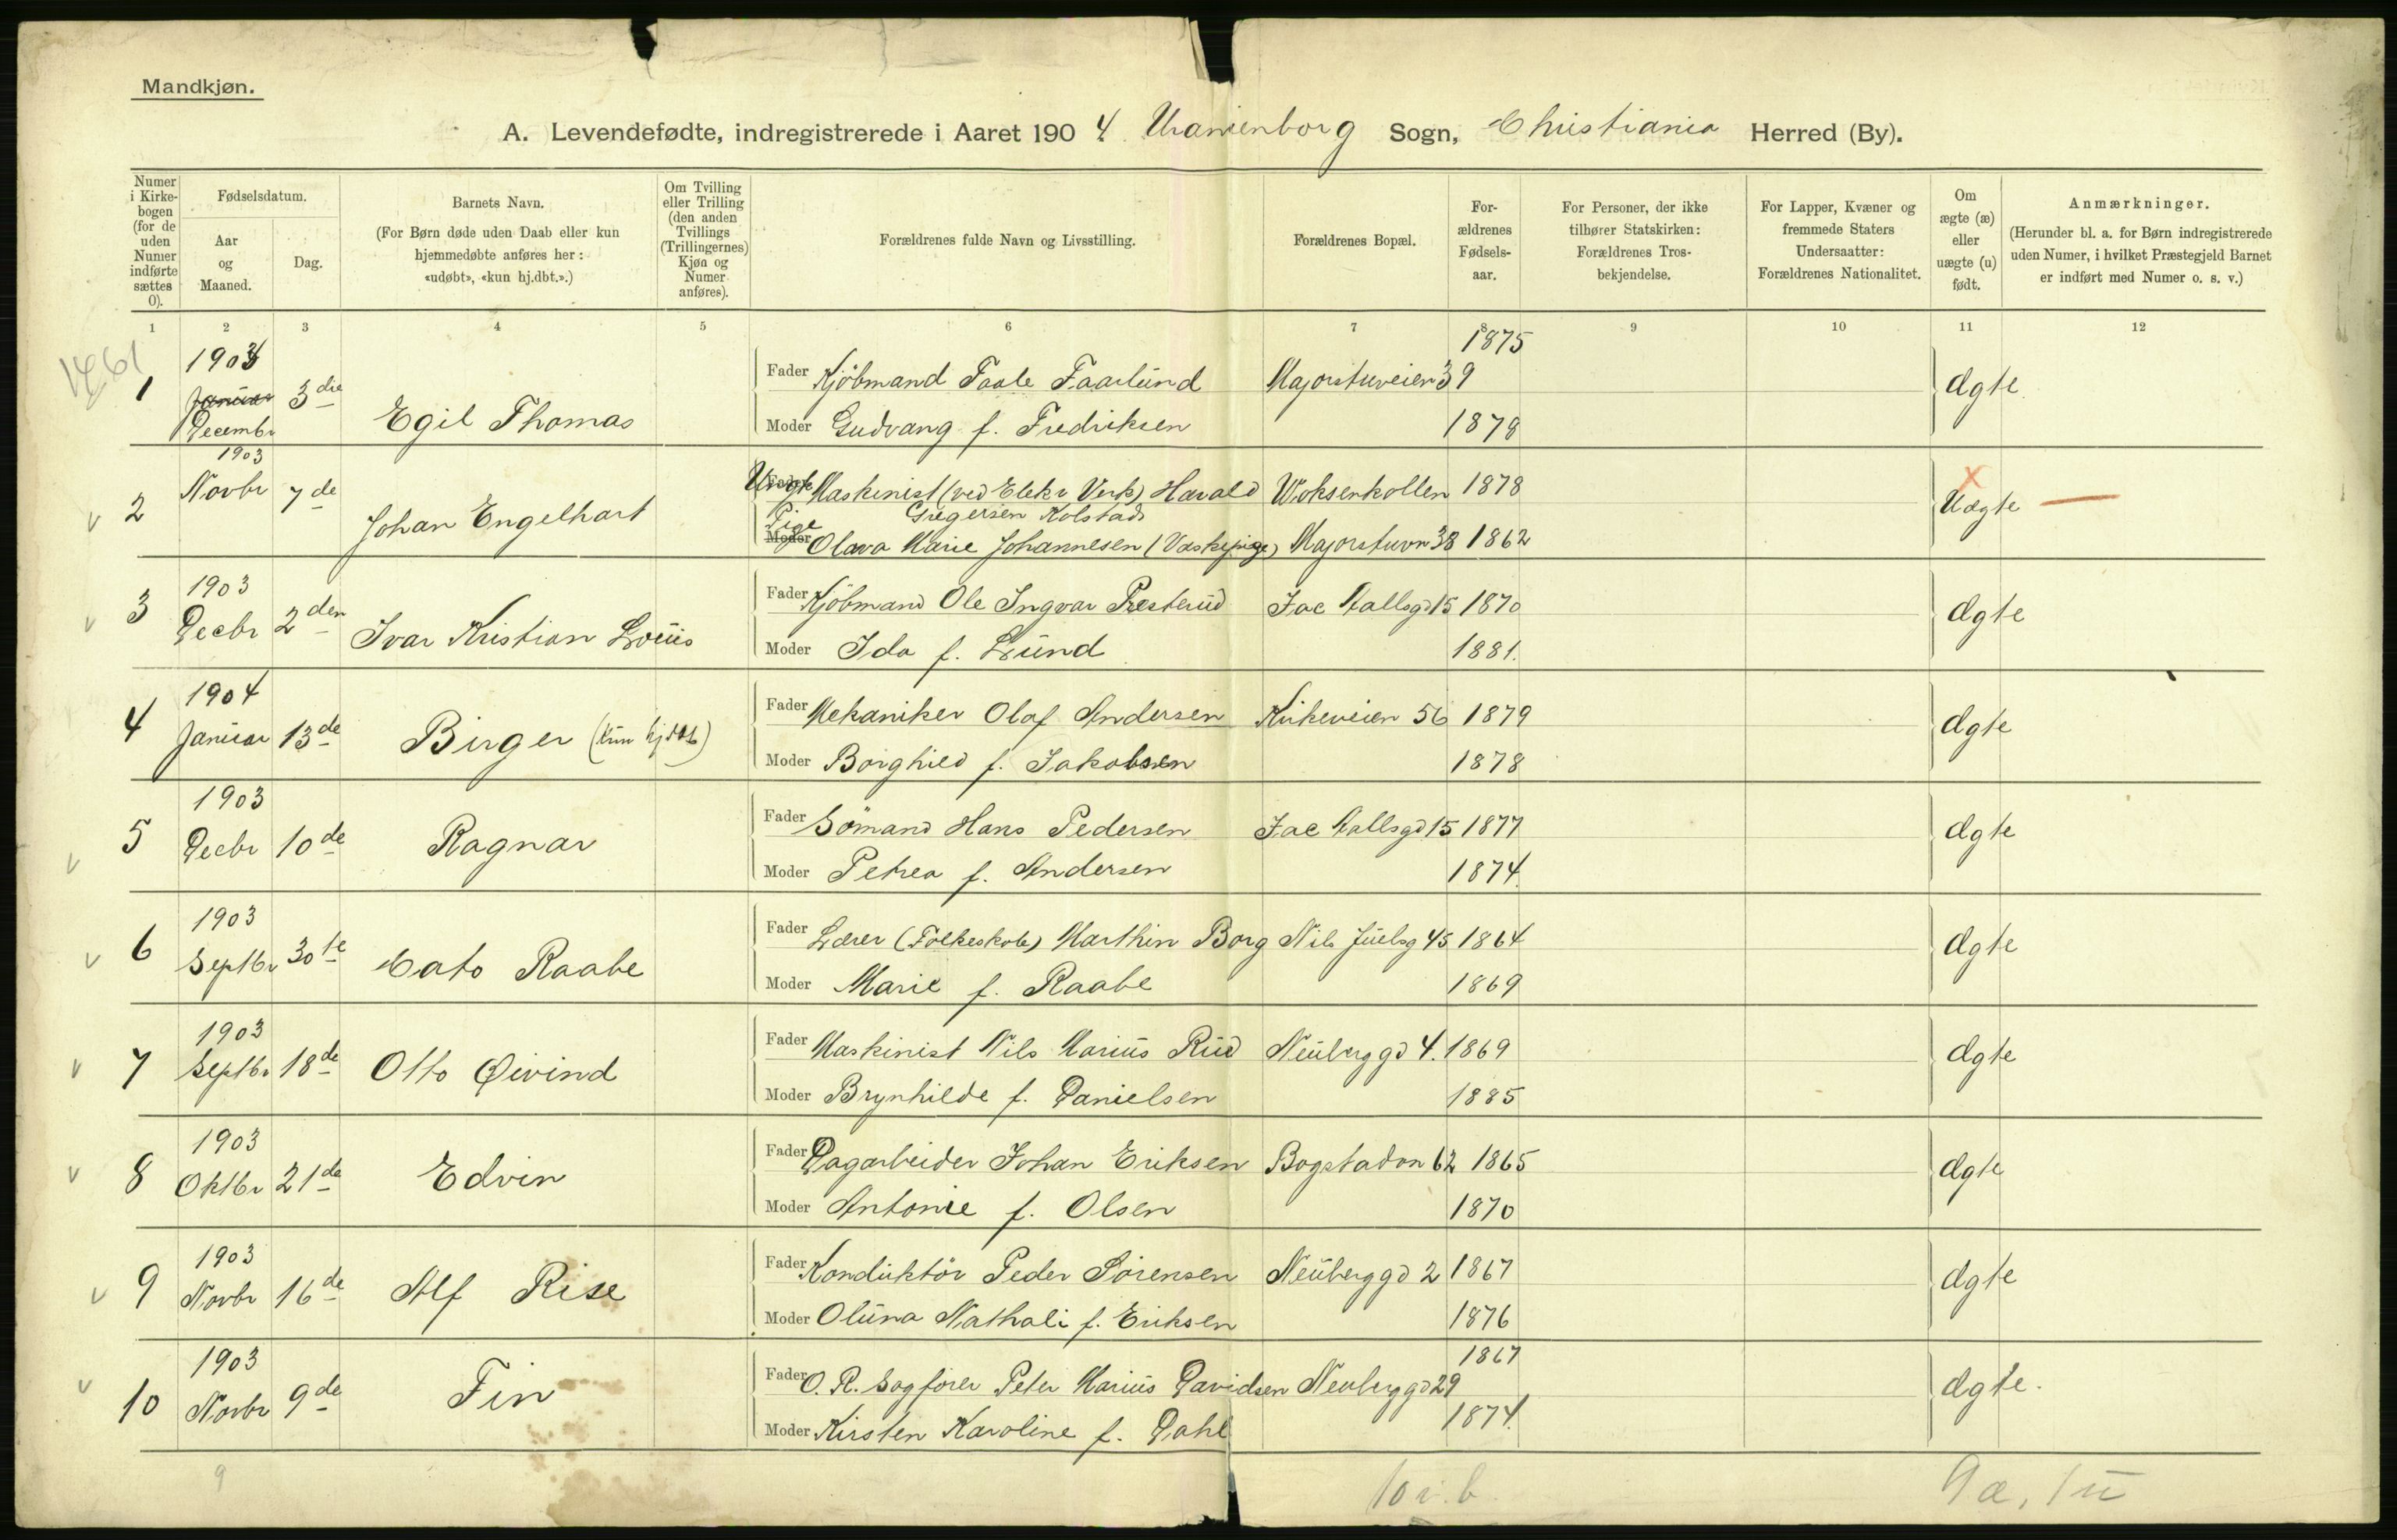 Mandkjøn.
A. Levendefødte, indregistrerede i Aaret 1904. Uranienborg Sogn, Christiania Herred (By).
Numer i Kirkebogen (for de uden Numer indførte sættes 0).
Fødselsdatum.
Aar og Maaned.
Dag.
Barnets Navn.
(For Børn døde uden Daab eller kun hjemmedøbte anføres her: «udøbt», «kun hj.dbt.».)
Om Tvilling eller Trilling (den anden Tvillings (Trillingernes) Kjøn og Numer anføres).
Forældrenes fulde Navn og Livsstilling.
Forældrenes Bopæl.
Forældrenes Fødselsaar.
For Personer, der ikke tilhører Statskirken: Forældrenes Trosbekjendelse.
For Lapper, Kvæner og fremmede Staters Undersaatter: Forældrenes Nationalitet.
Om ægte (æ) eller uægte (u) født.
Anmærkninger.
(Herunder bl. a. for Børn indregistrerede uden Numer, i hvilket Præstegjeld Barnet er indført med Numer o. s. v.)
1 2 3 4 5 6 7 8 9 10 11 12
1 1903 Januar Decembr 3die Egil Thomas
Fader Kjøbmand Taale Faarlund Majorstuveien 39 1875 Ægte
Moder Gudvang f. Fredriksen 1878
2 1903 Novbr 7de Johan Engelhart
Ungk Fader Maskinist (ved Elektr Verk) Harald Gregersen Kolstad Voksenkollen 1878 Uægte
Pige Moder Olava Marie Johannesen (Vaskepige) Majorstuvn 38 1862
3 1903 Decbr 2den Ivar Kristian Louis
Fader Kjøbmand Ole Ingvar Presterud Jac Aallsgd 15 1870 Ægte
Moder Ida f. Lund 1881.
4 1904 Januar 13de Birger (kun hj dbt)
Fader Mekaniker Olaf Andersen Kirkeveien 56 1879 Ægte
Moder Borghild f. Jakobsen 1878
5 1903 Decbr 10de Ragnar
Fader Sömand Hans Pedersen Jac Aallsgd 15 1877 Ægte
Moder Petrea f. Andersen 1874.
6 1903 Septbr 30te Cato Raabe
Fader Lærer (Folkeskole) Marthin Borg Nils Juelsg 45 1864 Ægte
Moder Marie f. Raabe 1869
7 1903 Septbr 18de Otto Øivind
Fader Maskinist Nils Marius Rud Neuberggd 4. 1869 Ægte
Moder Brynhilde f. Danielsen 1885
8 1903 Oktbr 21de Edvin
Fader Dagarbeider Johan Eriksen Bogstadvn 62 1865 Ægte
Moder Antonie f. Olsen 1870
9 1903 Novbr 16de Alf Rise
Fader Konduktör Peder Sörensen Neuberggd 2 1867 Ægte
Moder Oluna Nathali f. Eriksen 1876
10 1903 Novbr 9de Fin
Fader O. R. Sagfører Peter Marius Davidsen Neuberggd 29 1867 Ægte.
Moder Kirsten Karoline f. Dahl 1874.
9 10 i. b. 9æ, 1u